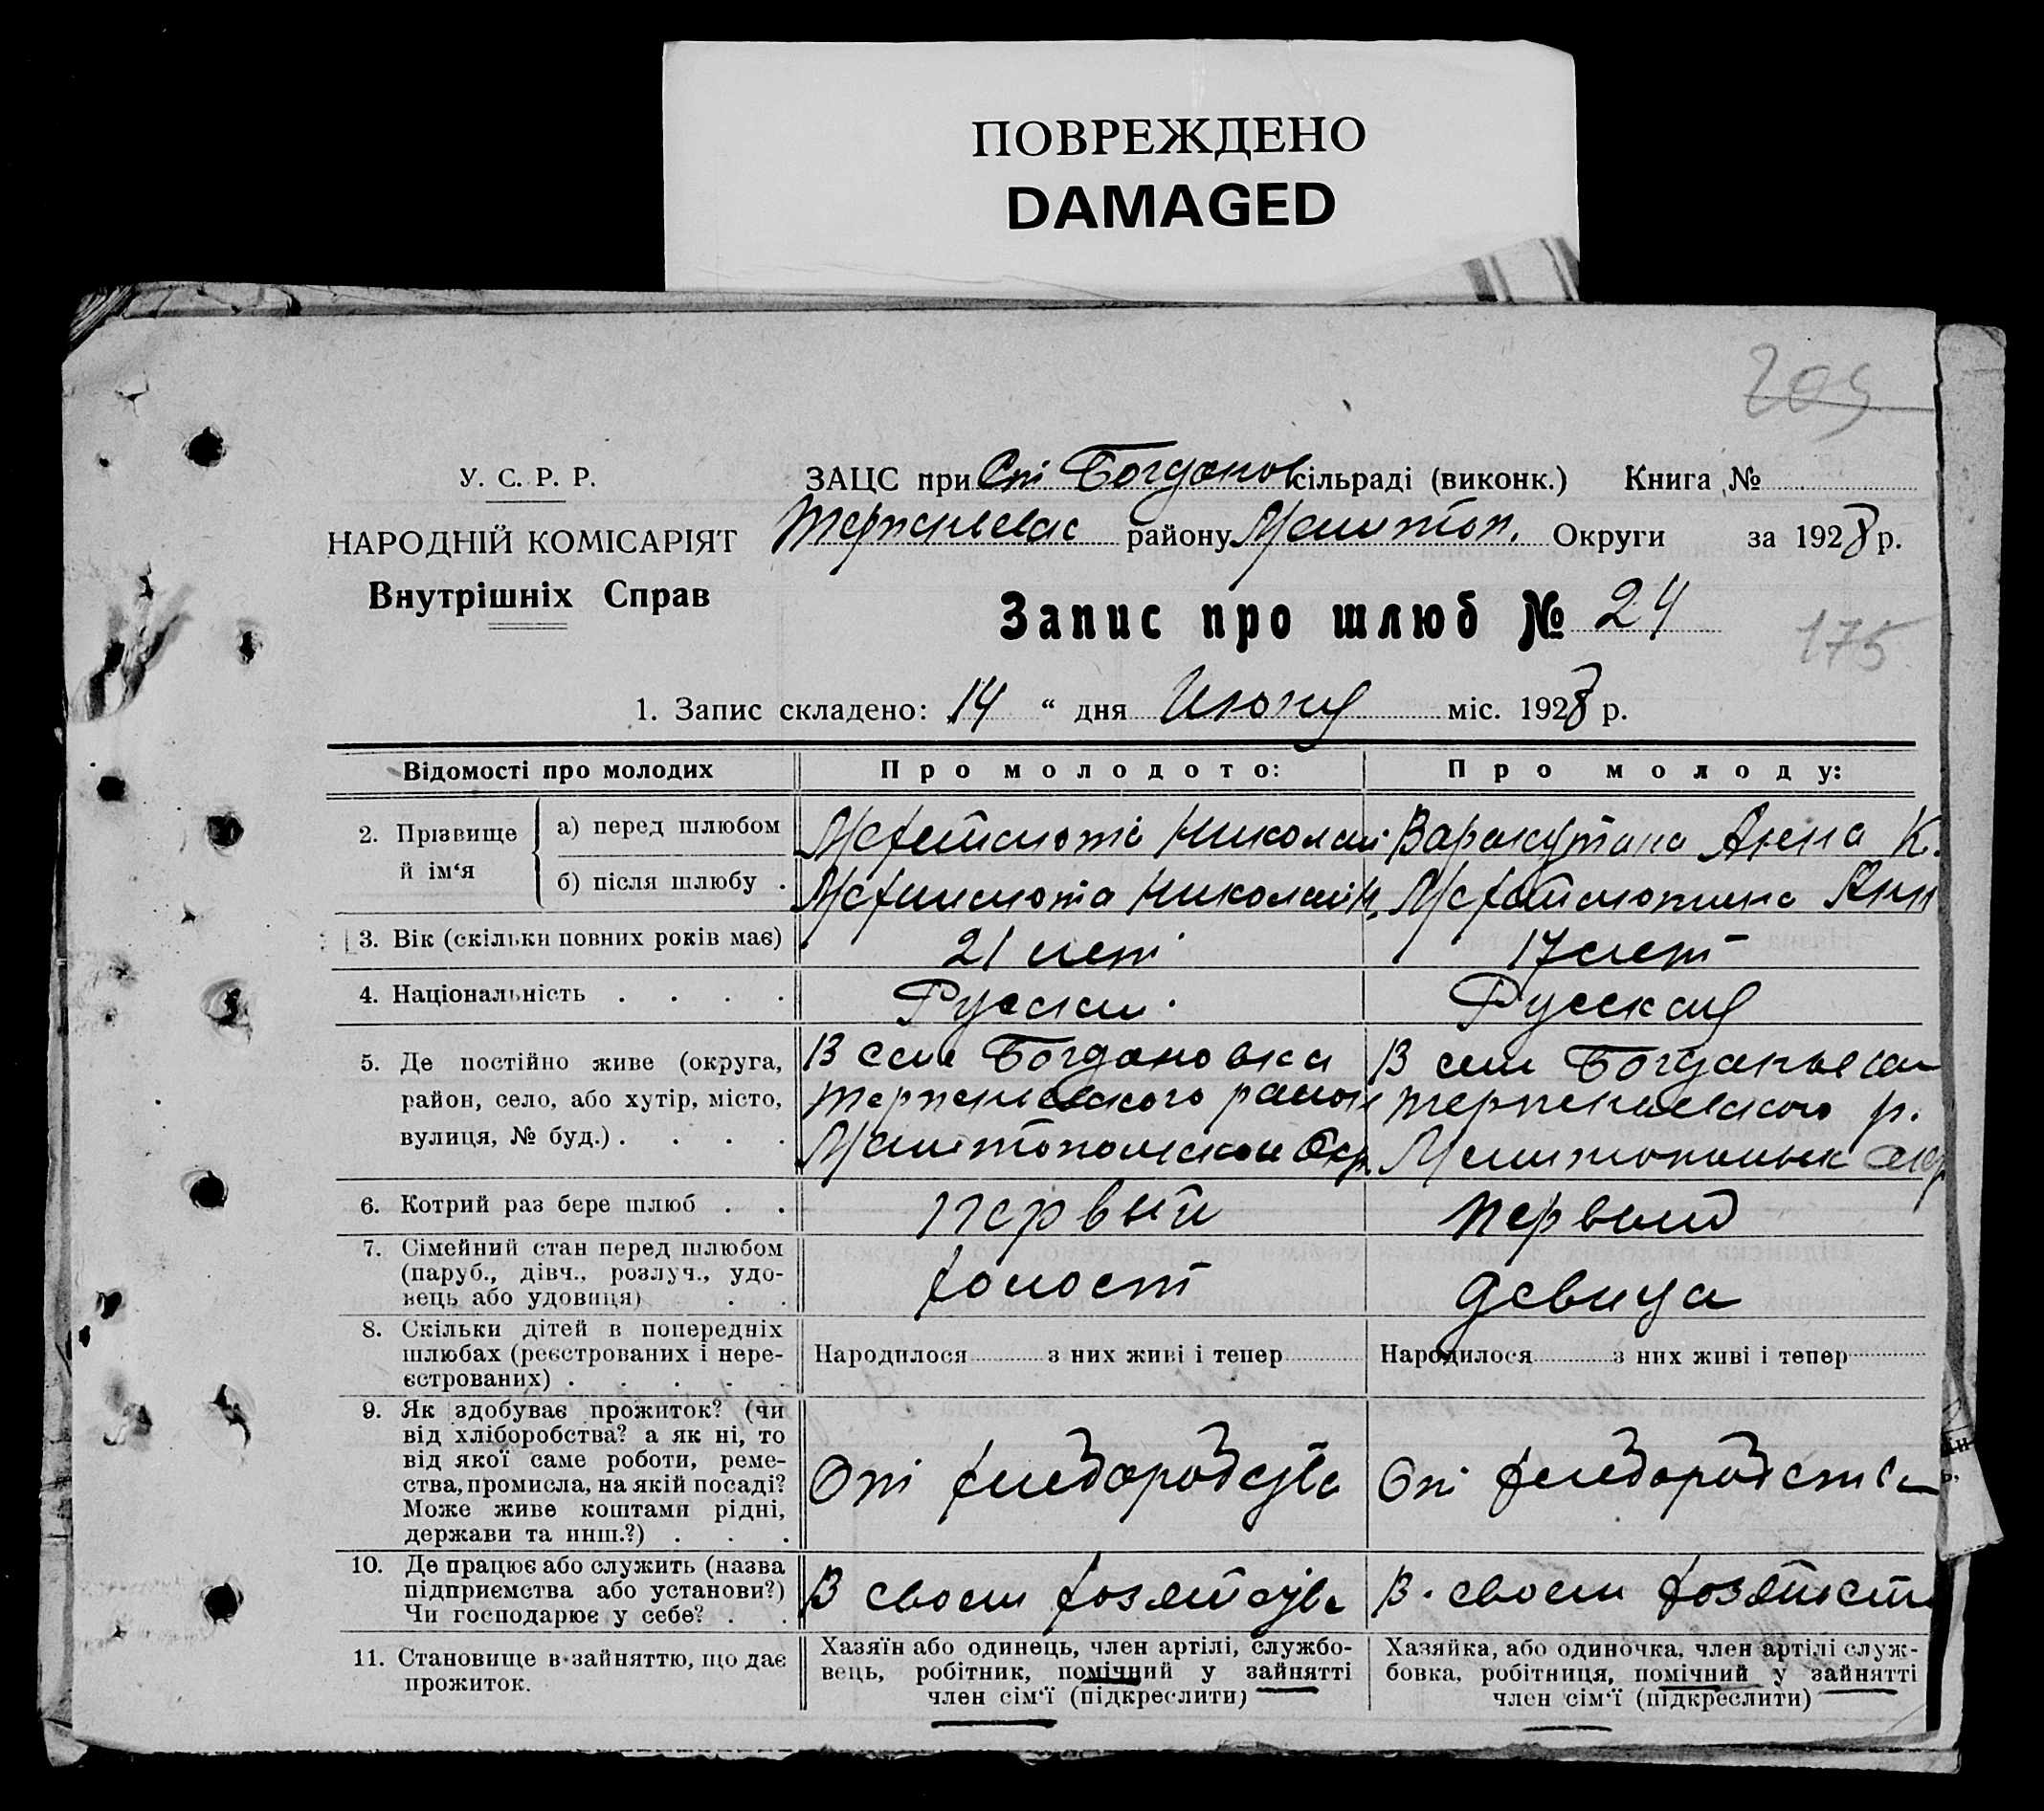 ПОВРЕЖДЕНО
DAMAGED
209
У. С. Р. Р.
НАРОДНІЙ КОМІСАРІЯТ
Внутрішніх Справ
ЗАЦС при Спі Богданов сільраді (виконк.) Книга №
Терпеньевас району Мелитоп. Округи за 1928 р.
Запис про шлюб № 24
175
1. Запис складено: 14 “ дня Июня міс. 1928 р.
Відомості про молодих
Про молодого:
Про молоду:
2. Прізвище й ім‘я
а) перед шлюбом
Николай
Анна К.
б) після шлюбу .
Николай Н.
Анн
3. Вік (скільки повних років має)
21 лет
17 лет
4. Національність . . . .
Русский
Русская
5. Де постійно живе (округа,
район, село, або хутір, місто,
вулиця, № буд.) . . . .
В селе Богдановка
Терпеньевского район
Мелитопольской Окр.
В селе Богданьевки
Терпеньевского р.
Мелитопольск окр
6. Котрий раз бере шлюб . .
первый
первый
7. Сімейний стан перед шлюбом
(паруб., дівч., розлуч., удо-
вець або удовиця) . .
холост
девица
8. Скільки дітей в попередніх
шлюбах (реєстрованих і нере-
єстрованих) . . . . .
Народилося з них живі і тепер
Народилося з них живі і тепер
9. Як здобуває прожиток? (чи
від хліборобства? а як ні, то
від якої саме роботи, реме-
ства, промисла, на якій посаді?
Може живе коштами рідні,
держави та инш.?) . . .
От
От
10. Де працює або служить (назва
підприємства або установи?)
Чи господарює у себе? . .
В своем хозяйстве
В своем хозяйств
11. Становище в зайняттю, що дає
прожиток.
Хазяїн або одинець, член артілі, службо-
вець, робітник, помічний у зайнятті
член сім‘ї (підкреслити)
Хазяйка, або одиночка, член артілі служ-
бовка, робітниця, помічний у зайнятті
член сім‘ї (підкреслити)